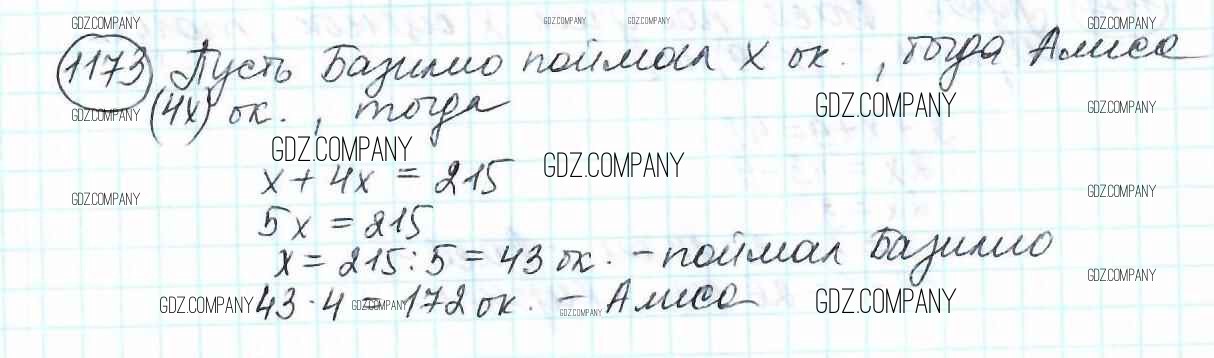 GDZ.COMPANY GDZ.COMPANY GDZ.COMPANY GDZ.COMPANY
1173 Пусть Базилио поймал x ок., тогда Алиса
GDZ.COMPANY (4x) ок., тогда GDZ.COMPANY GDZ.COMPANY
GDZ.COMPANY GDZ.COMPANY
x + 4x = 215
GDZ.COMPANY GDZ.COMPANY
5x = 215
x = 215 : 5 = 43 ок. – поймал Базилио
GDZ.COMPANY
GDZ.COMPANY 43 · 4 = 172 ок. – Алиса GDZ.COMPANY
GDZ.COMPANY GDZ.COMPANY